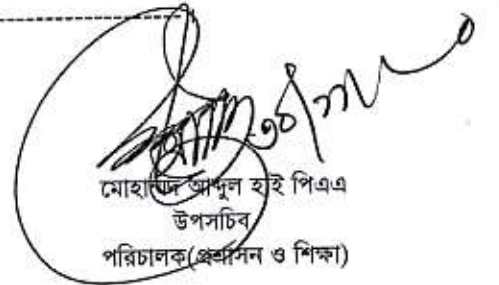 মোহাম্মদ আব্দুল হাই পিএএ
উপসচিব
পরিচালক(প্রশাসন ও শিক্ষা)